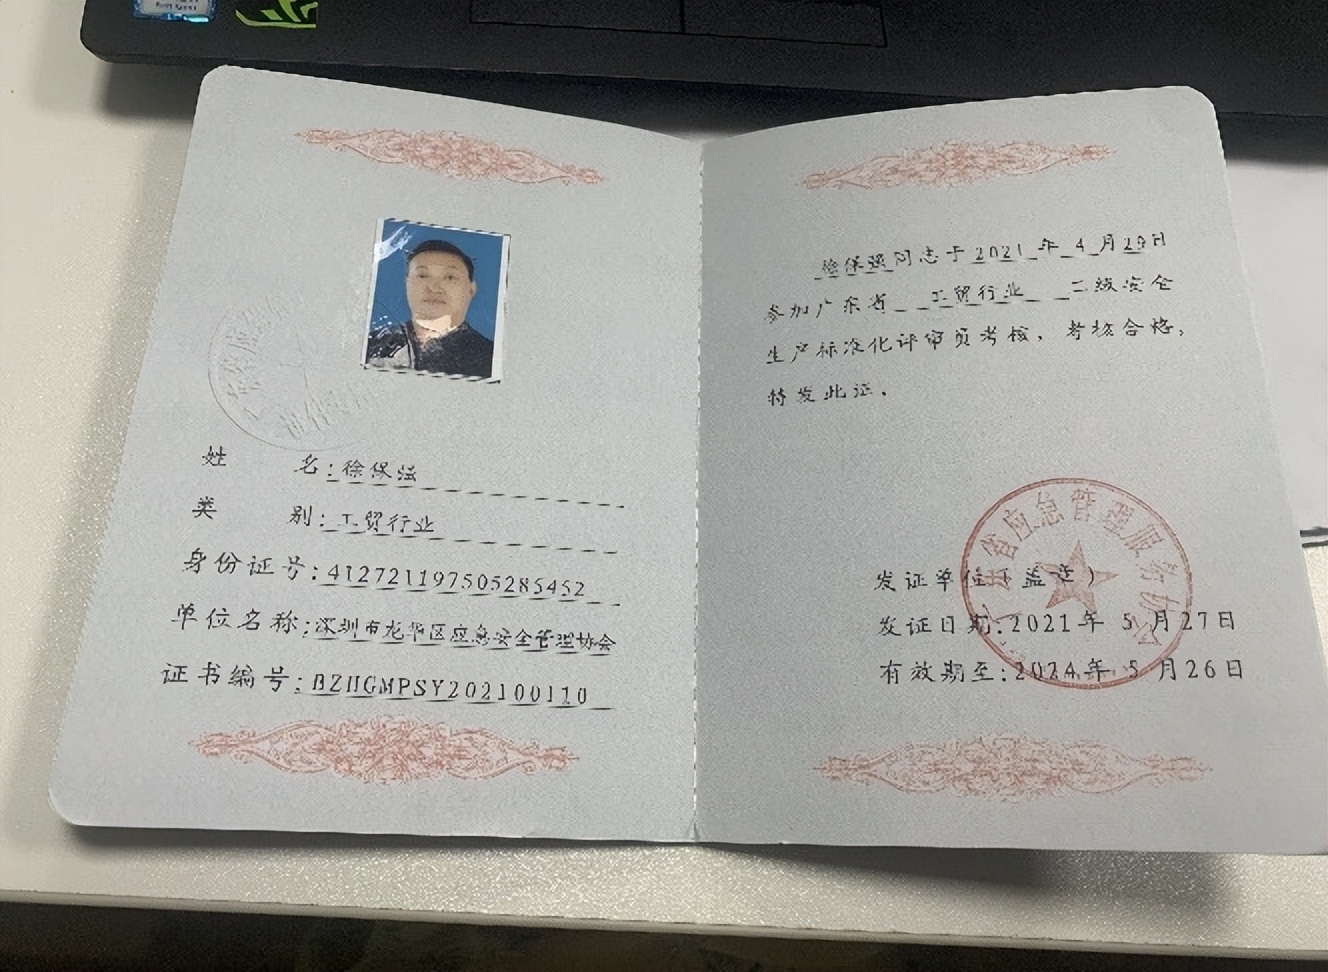 姓 名:徐保强
类 别:工贸行业
身份证号:412721197505285452
单位名称:深圳市龙华区应急安全管理协会
证书编号:BZHGMPSY202100110
徐保强同志于2021年4月29日
参加广东省 工贸行业 二级安全
生产标准化评审员考核,考核合格,
特发此证。
省应急管理服务协会
发证单位(盖章)
发证日期:2021年5月27日
有效期至:2024年5月26日